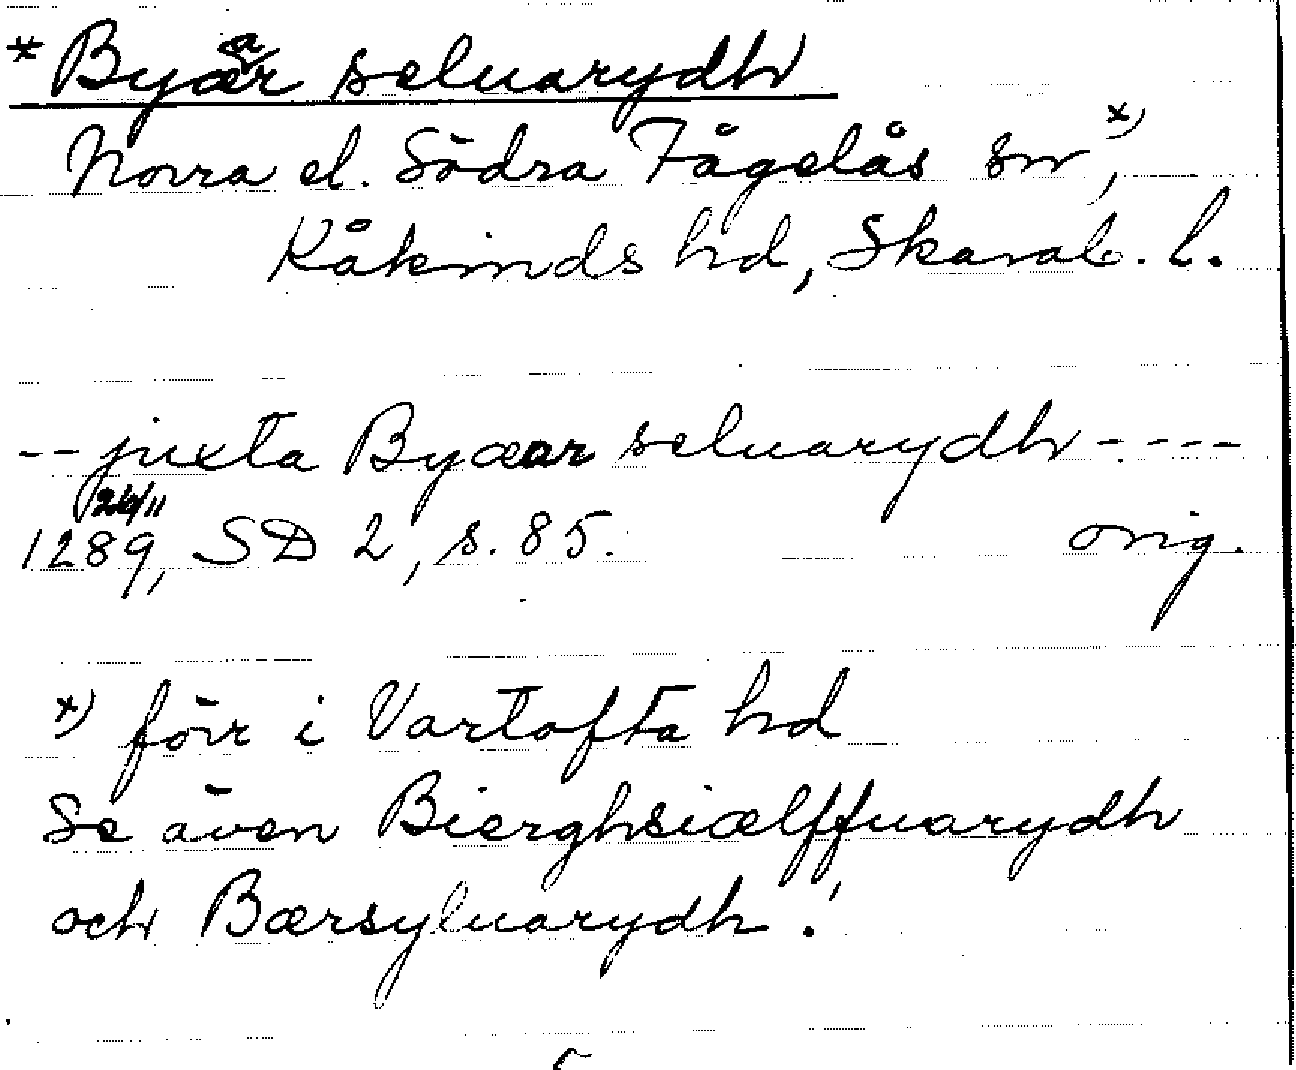 *Byæar seluarydh
Norra el. Södra Fågelås sn x),
Kåkinds hd, Skarab. l.
-- juxta Byæar seluarydh ----
1289 26/11, SD 2, s. 85. orig.
x) förr i Vartofta hd
Se även Bierghsiælffuarydh
och Bærsyluarydh!